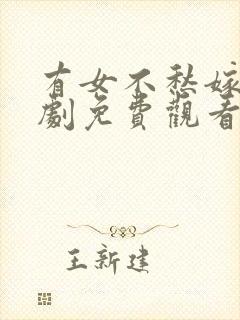 有女不愁嫁
劇免費觀看
王新建